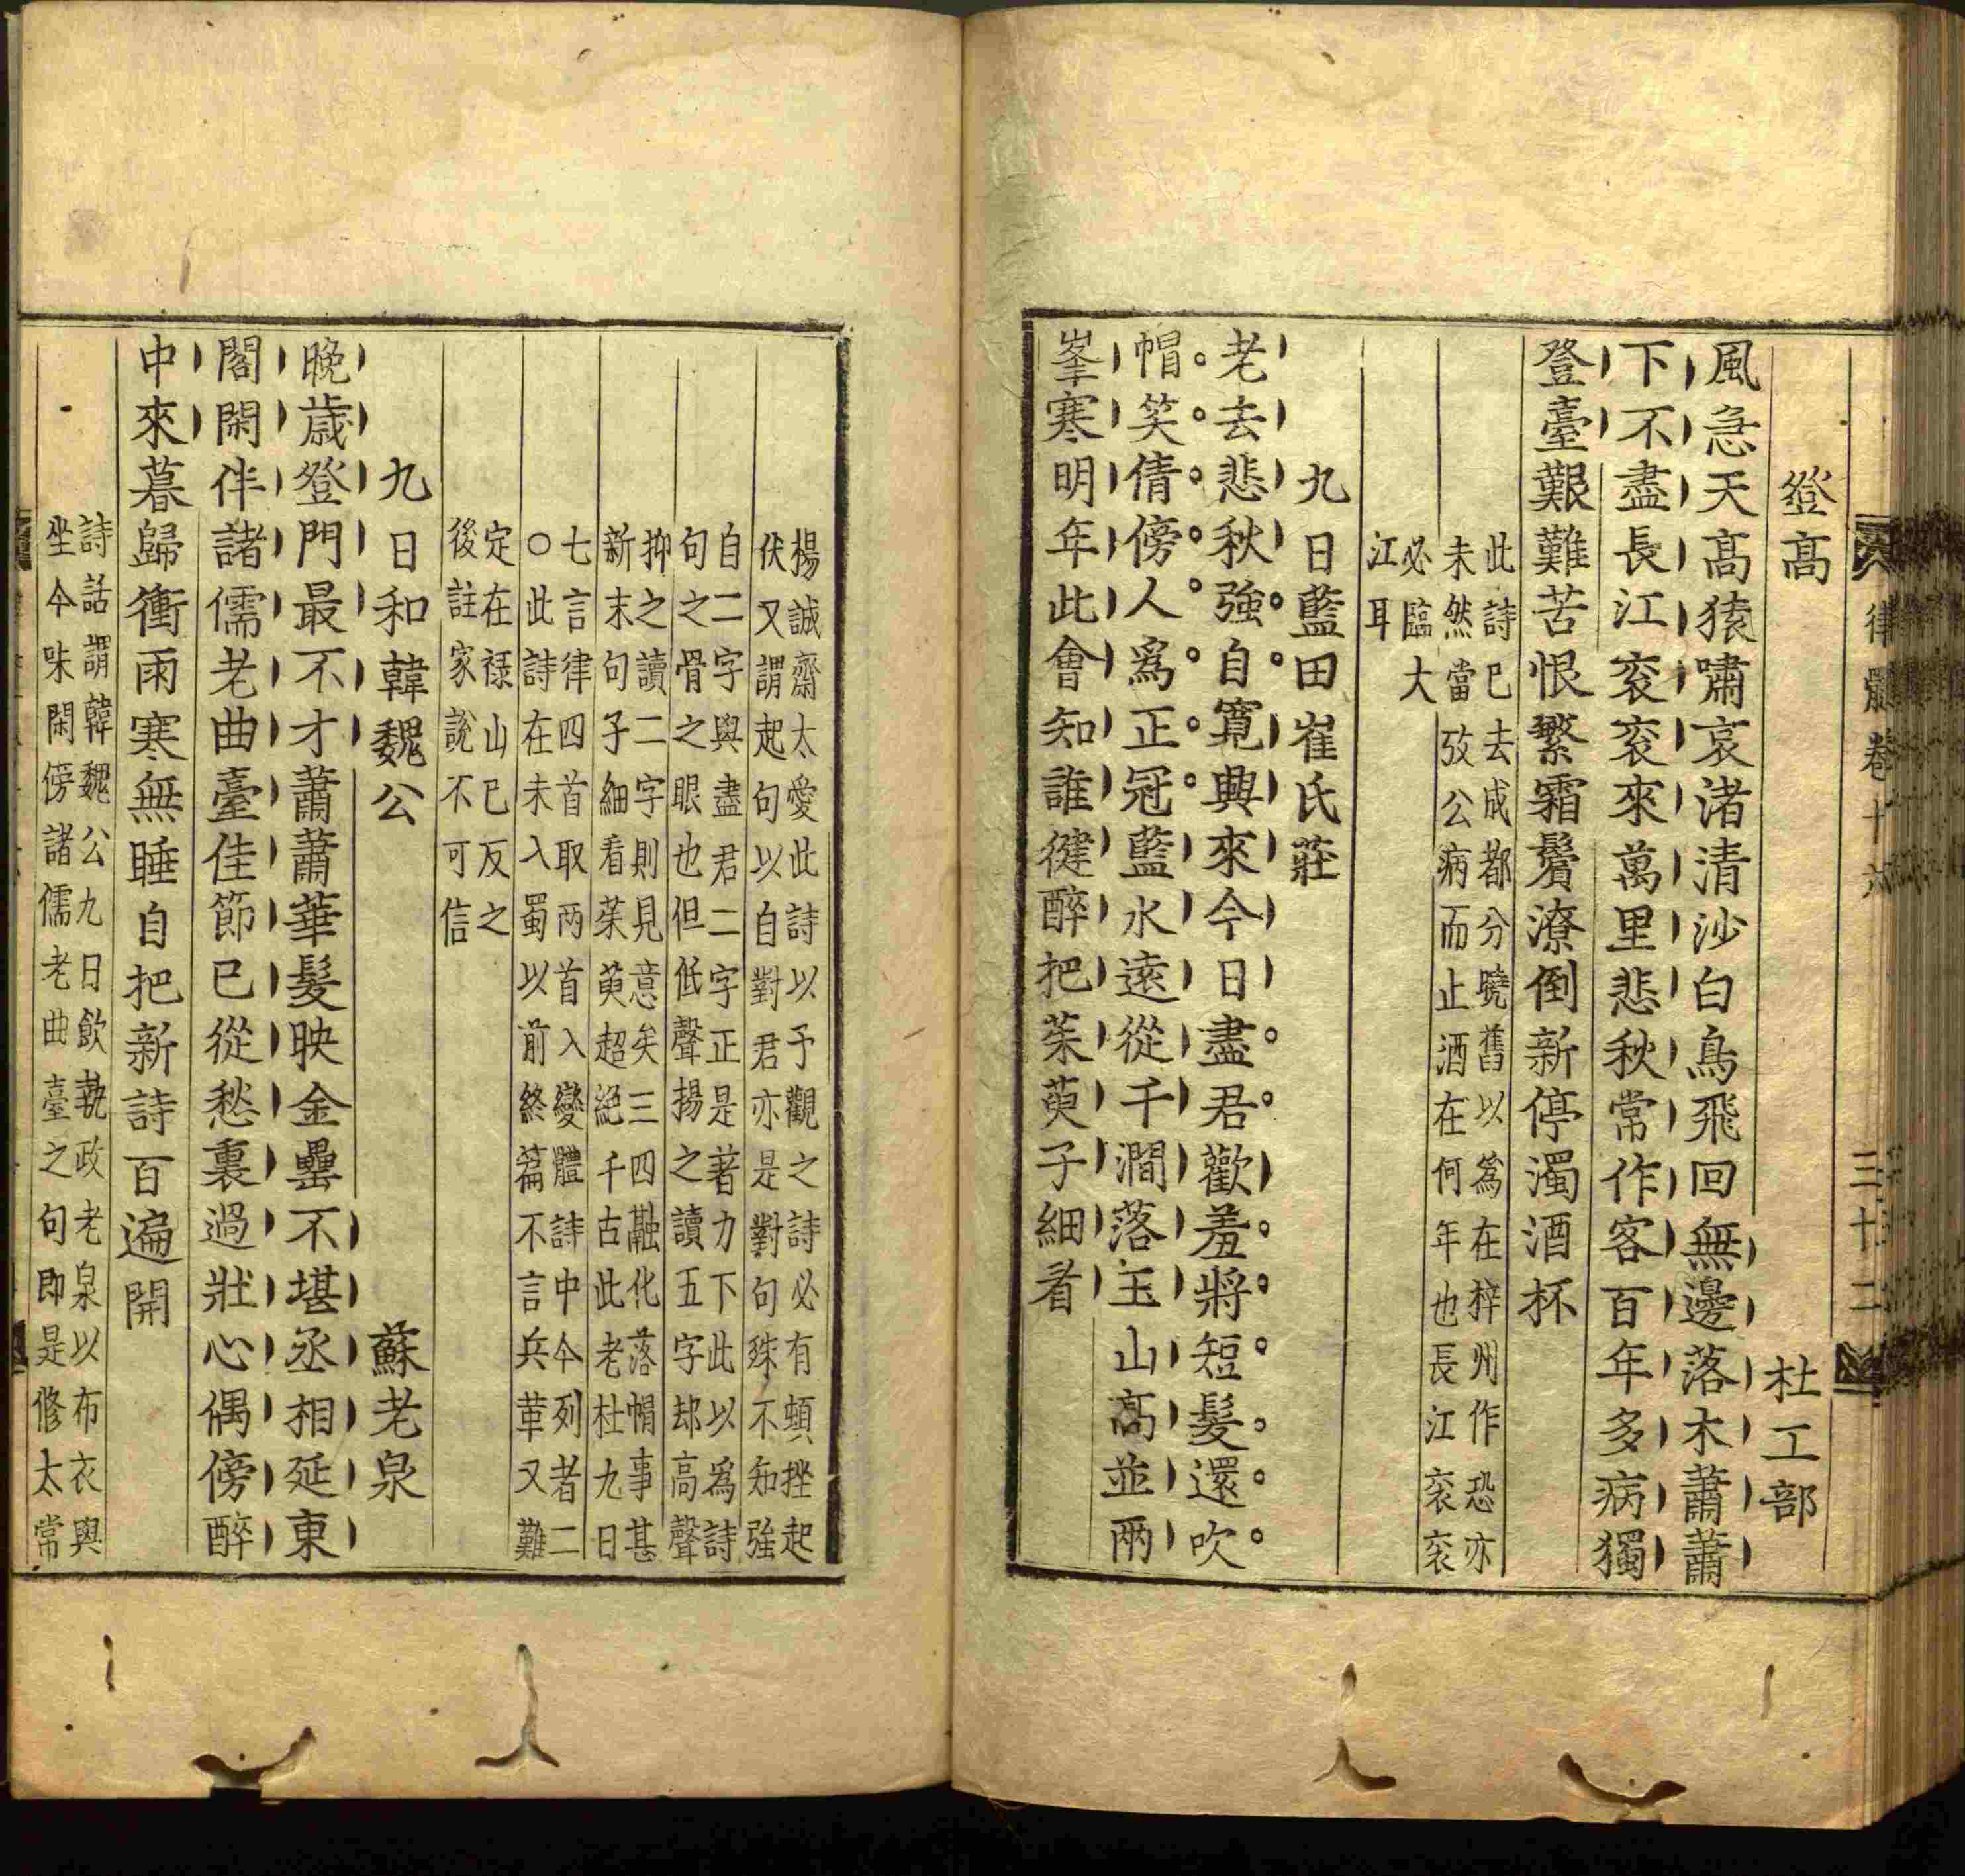 律髓卷十六 三十二
登高 杜工部
風急天髙猿嘯哀渚清沙白鳥飛回無邊落木蕭蕭
下不盡長江衮衮來萬里悲秋常作客百年多病獨
登臺艱難苦恨繁霜鬢潦倒新停濁酒杯
此詩已去成都分曉舊以爲在梓州作恐亦
未然當攷公病而止酒在何年也長江衮衮
必臨大
江耳
九日藍田崔氏莊
老去悲秋強自寬興來今日盡君歡羞將短髮還吹
帽笑倩傍人爲正冠藍水遠從千澗落玉山高並兩
峯寒明年此會知誰健醉把茱萸子細看
楊誠齋太愛此詩以予觀之詩必有頓挫起
伏又謂起句以自對君亦是對句殊不知強
自二字與盡君二字正是著力下此以爲詩
句之骨之眼也但低聲揚之讀五字却高聲
抑之讀二字則見意矣三四融化落帽事甚
新末句子細看茱萸超絕千古此老杜九日
七言律四首取两首入變體詩中今列者二
○此詩在未入蜀以前終篇不言兵革又難
定在禄山已反之
後註家說不可信
九日和韓魏公 蘇老泉
晚歲登門最不才蕭蕭華髮映金罍不堪丞相延東
閣閑伴諸儒老曲臺佳節已從愁裏過壯心偶傍醉
中來暮歸衝雨寒無睡自把新詩百遍開
詩話謂韓魏公九日飲執政老泉以布衣與
坐今味閑傍諸儒老曲臺之句即是修太常